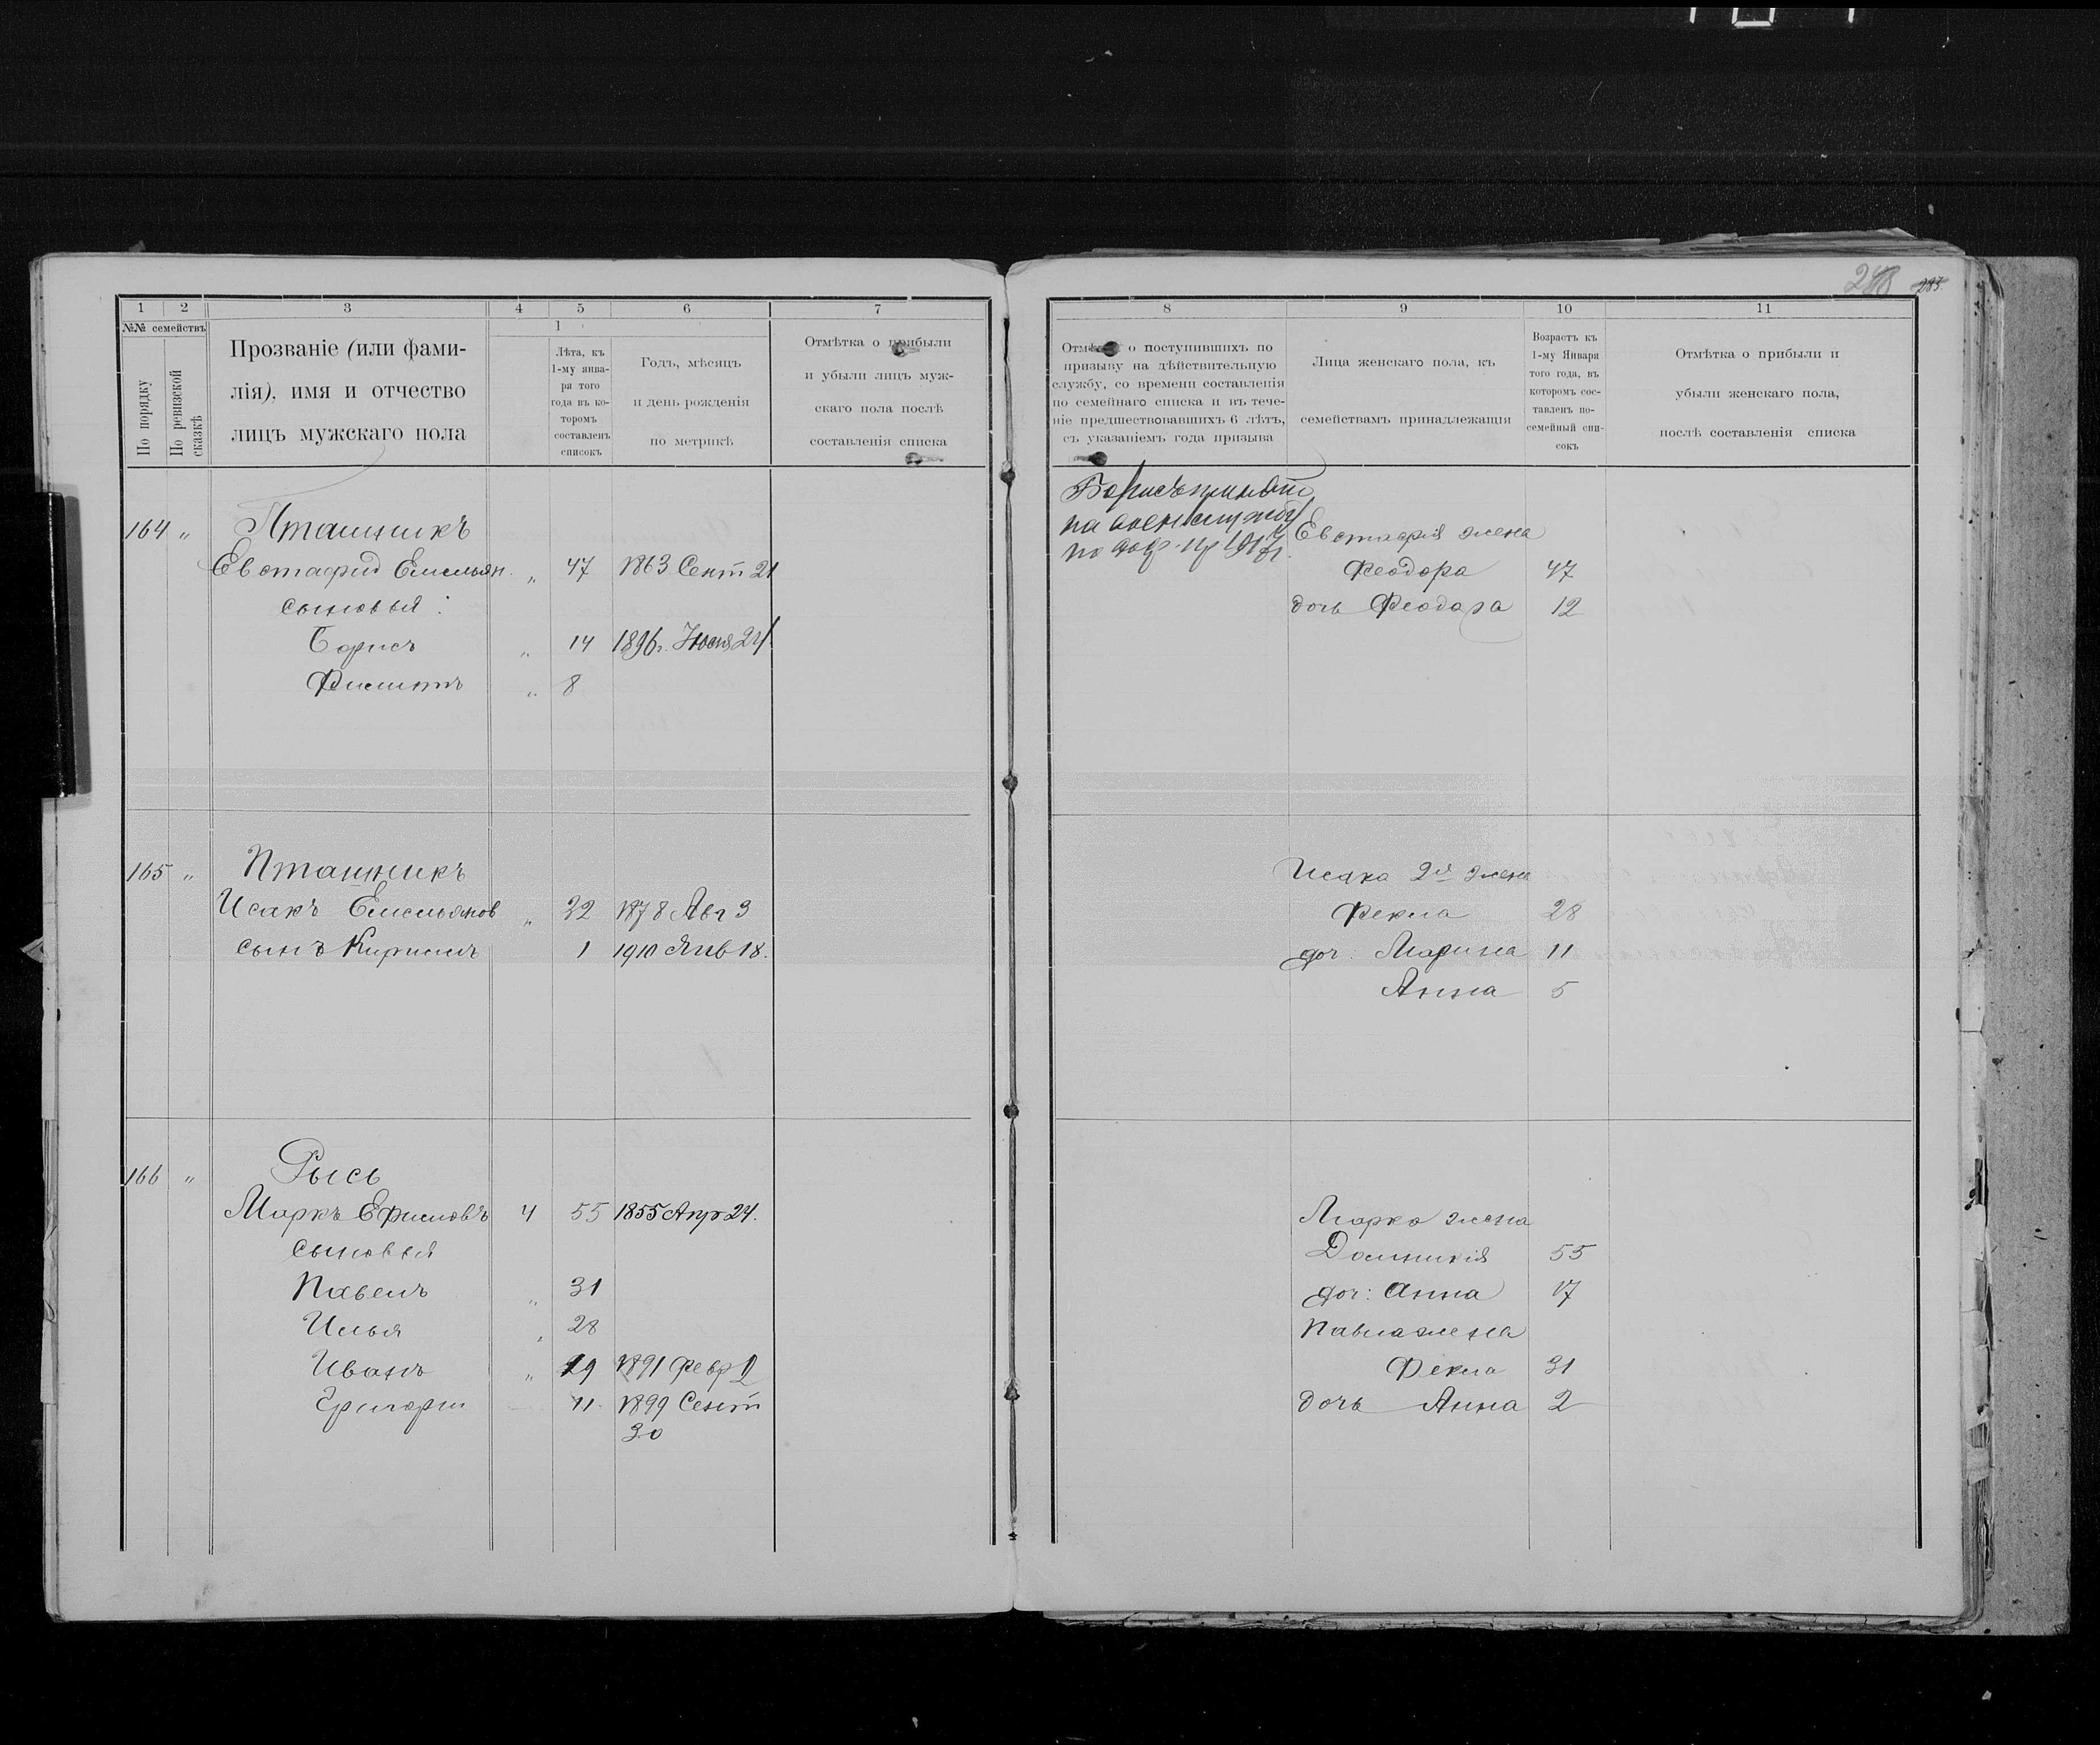 288 283.
1 2 3 4 5 6 7
№№ семействъ
По порядку
По ревизской сказкѣ
Прозваніе (или фами-
лія), имя и отчество
лицъ мужскаго пола
1
Лѣта, къ
1-му янва-
ря того
года въ ко-
торомъ
составленъ
списокъ
Годъ, мѣсяцъ
и день рожденія
по метрикѣ
Отмѣтка о прибыли
и убыли лицъ муж-
скаго пола послѣ
составленія списка
164 " Пташникъ
Евстафій Емельян. " 47 1863 Сент 21
сыновья:
Борисъ " 14 1896г. Іюля 24
Филиппъ " 8
165 " Пташникъ
Исакъ Емельянов " 32 1878 Авг 3
сынъ Кириллъ 1 1910 Янв 18.
166 " Рысь
Маркъ Ефимовъ 4 55 1855 Апр 24.
сыновья
Павелъ " 31
Илья " 28
Иванъ " 19 1891 Февр 2
Григорій 11 1899 Сент
30
8 9 10 11
Отмѣтка о поступившихъ по
призыву на дѣйствительную
службу, со времени составленія
по семейнаго списка и въ тече-
ніе предшествовавшихъ 6 лѣтъ,
съ указаніемъ года призыва
Лица женскаго пола, къ
семействамъ принадлежащія
Возрастъ къ
1-му Января
того года, въ
которомъ сос-
тавленъ по-
семейный спи-
сокъ
Отмѣтка о прибыли и
убыли женскаго пола,
послѣ составленія списка
Борисъ принят
на воен службу
по 1917г.
Евстафія жена
Феодора 47
дочь Феодора 12
Исака 2я жена
Фекла 28
доч: Марина 11
Анна 5
Марка жена
Домникія 55
доч: Анна 17
Павла жена
Фекла 31
дочь Анна 2